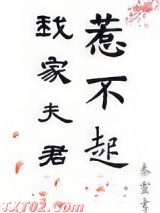 惹不起
我家夫君
TXT02.Com